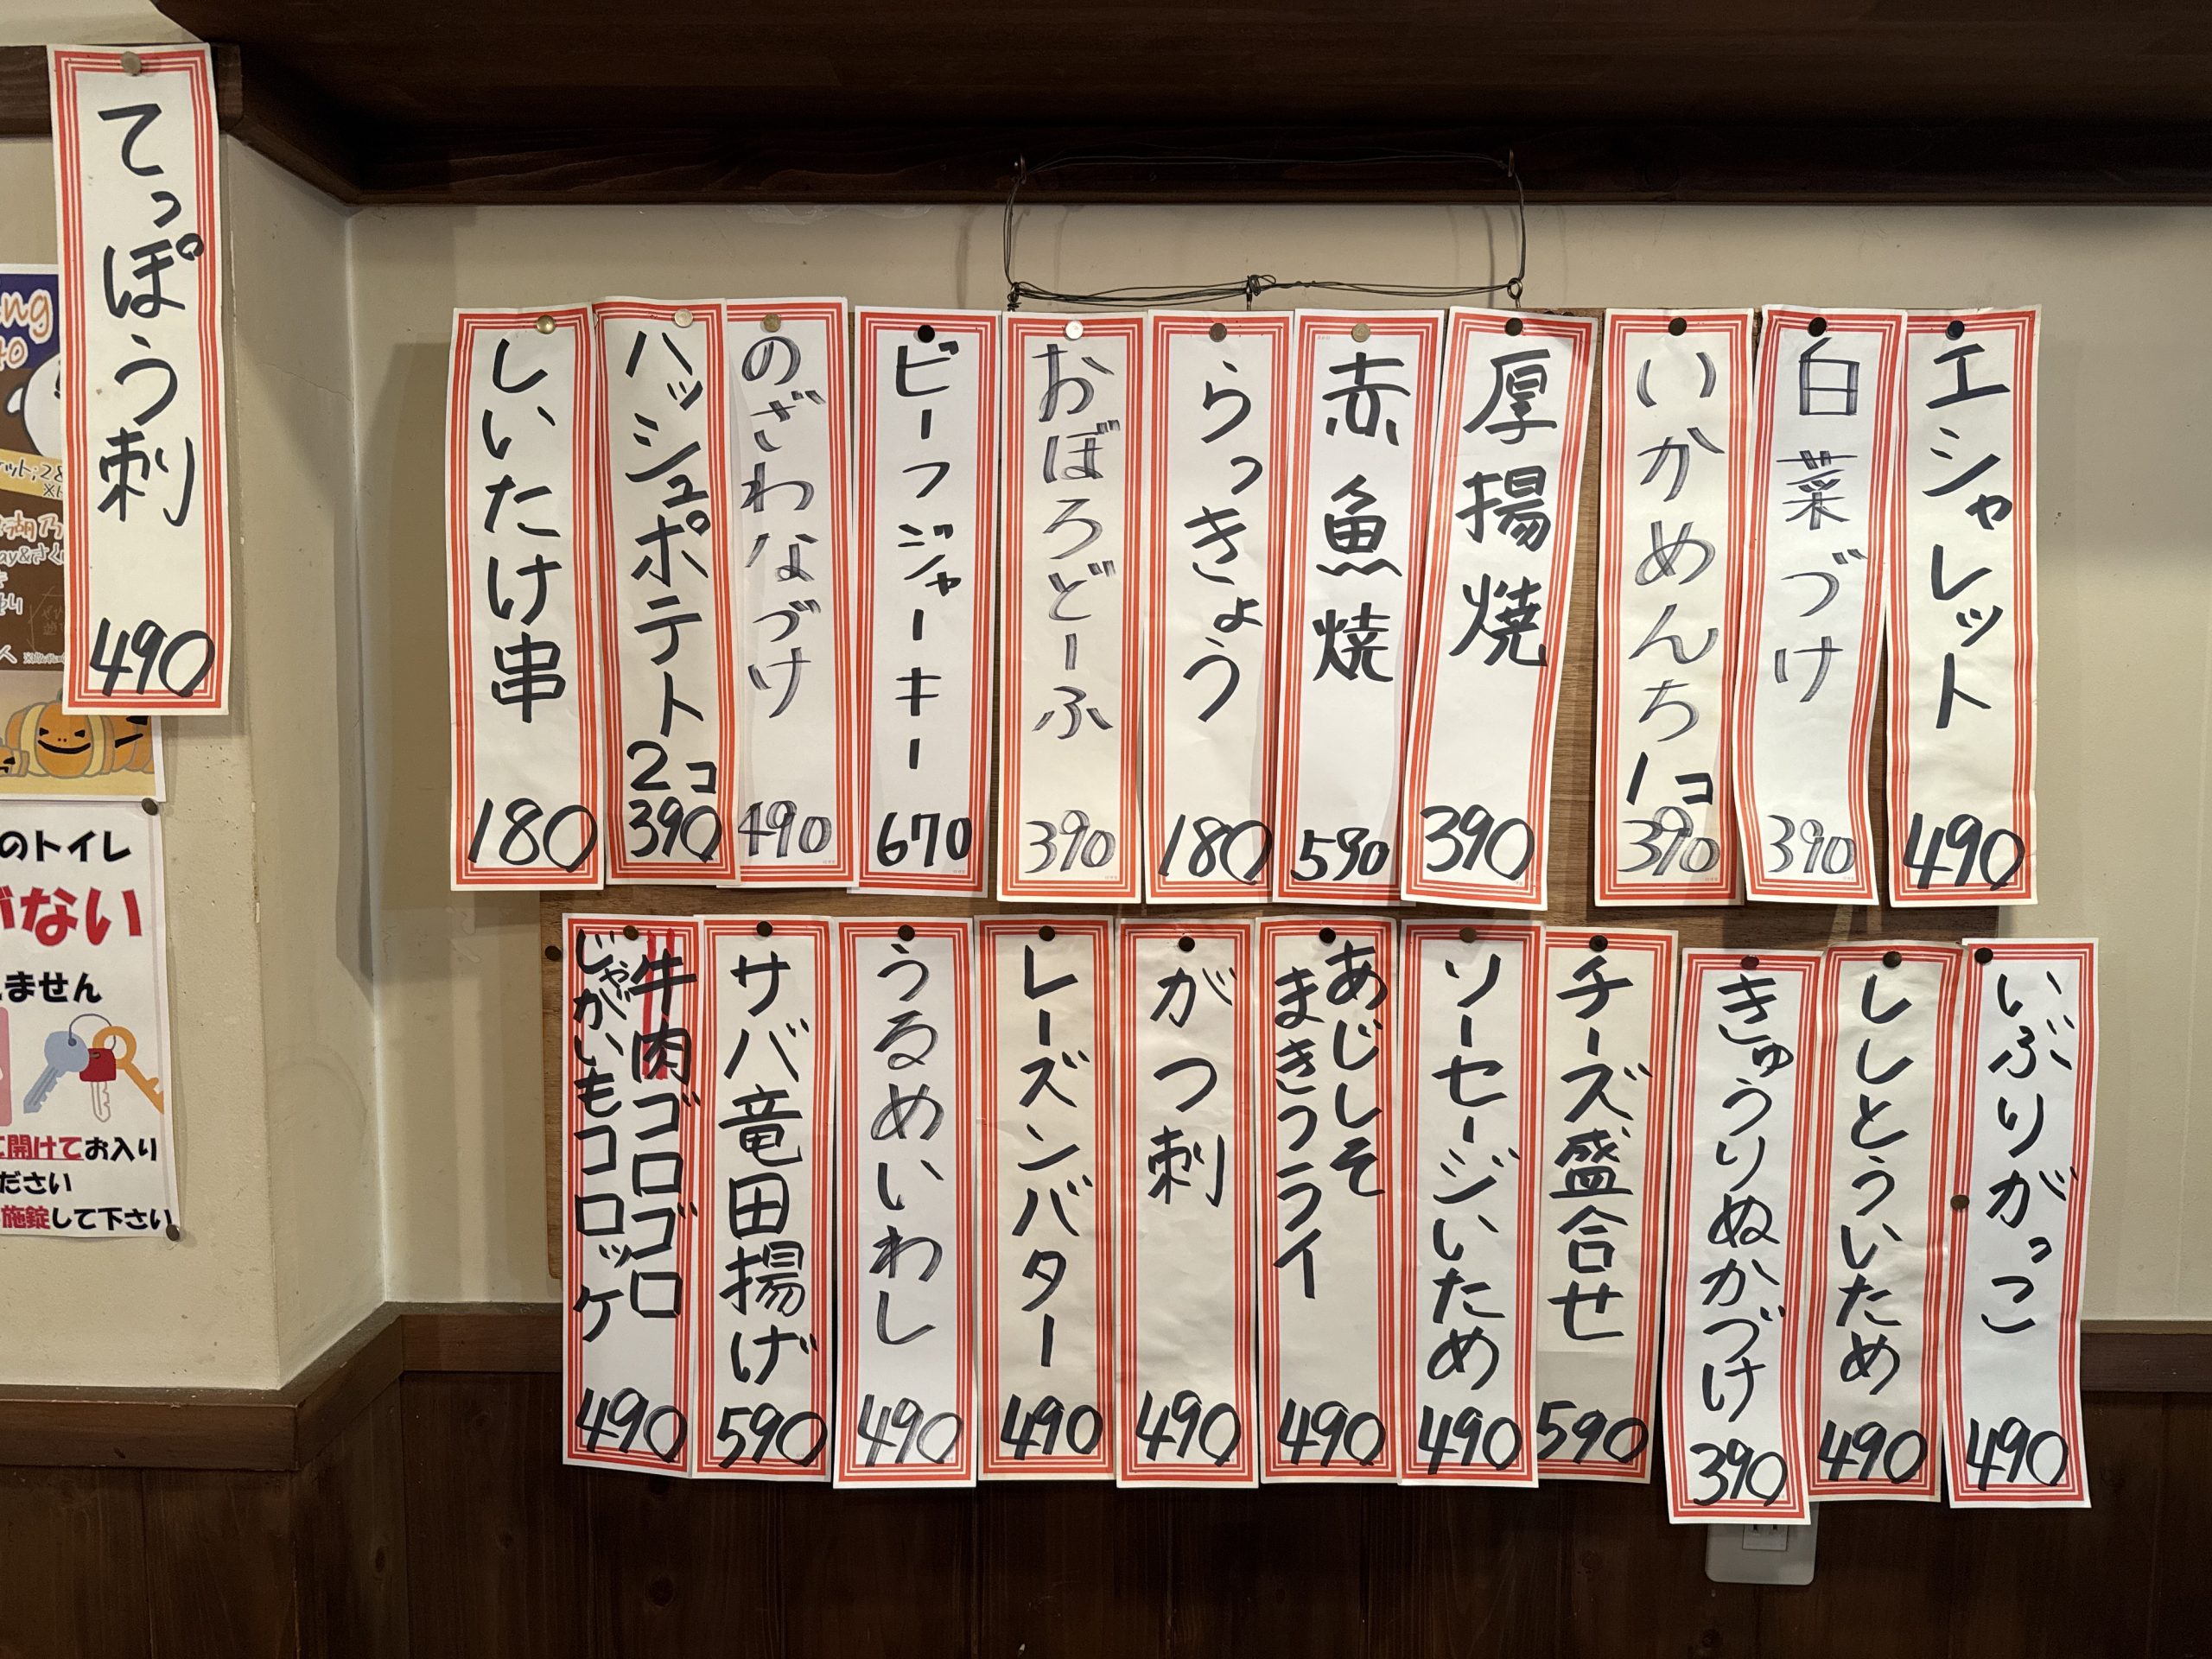 エシャレット
490
白菜づけ
390
いかめんち
1コ
390
厚揚焼
390
赤魚焼
590
らっきょう
180
おぼろどーふ
390
ビーフジャーキー
670
のざわなづけ
490
ハッシュポテト
2コ
390
しいたけ串
180
てっぽう刺
490
いぶりがっこ
490
ししとういため
490
きゅうりぬかづけ
390
チーズ盛合せ
590
ソーセージいため
490
あじしそ
まきフライ
490
がつ刺
490
レーズンバター
490
うるめいわし
490
サバ竜田揚げ
590
牛肉ゴロゴロ
じゃがいもコロッケ
490
のトイレ
がない
ません
開けてお入り
ださい
施錠して下さい